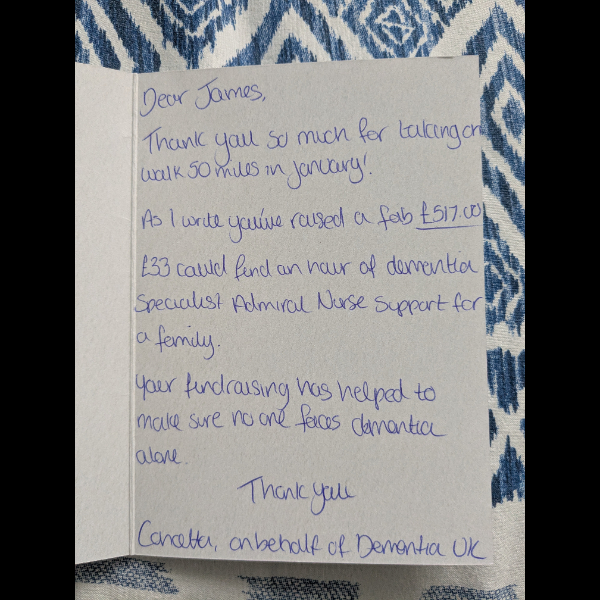 Dear James,
Thank you so much for taking on
walk 50 miles in january!
As I write you've raised a fab £517.00
£33 could fund an hour of dementia
specialist Admiral Nurse support for
a family.
your fundraising has helped to
make sure no one faces dementia
alone.
Thank you
Concetta, on behalf of Dementia UK